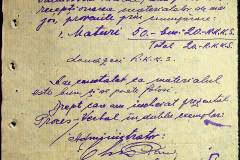 recepționarea materialelor ce ma
jos, provenite prin cumpărare
1. Maturi 50.- buc. 20.- R.K.K.S.
Total 20.- R.K.K.S.
douăzeci R.K.K.S.
Am constatat ca materialul
este bun și se poate folosi.
Drept care am încheiat prezentul
Proces-Verbal în dublu exemplar.
Administrator